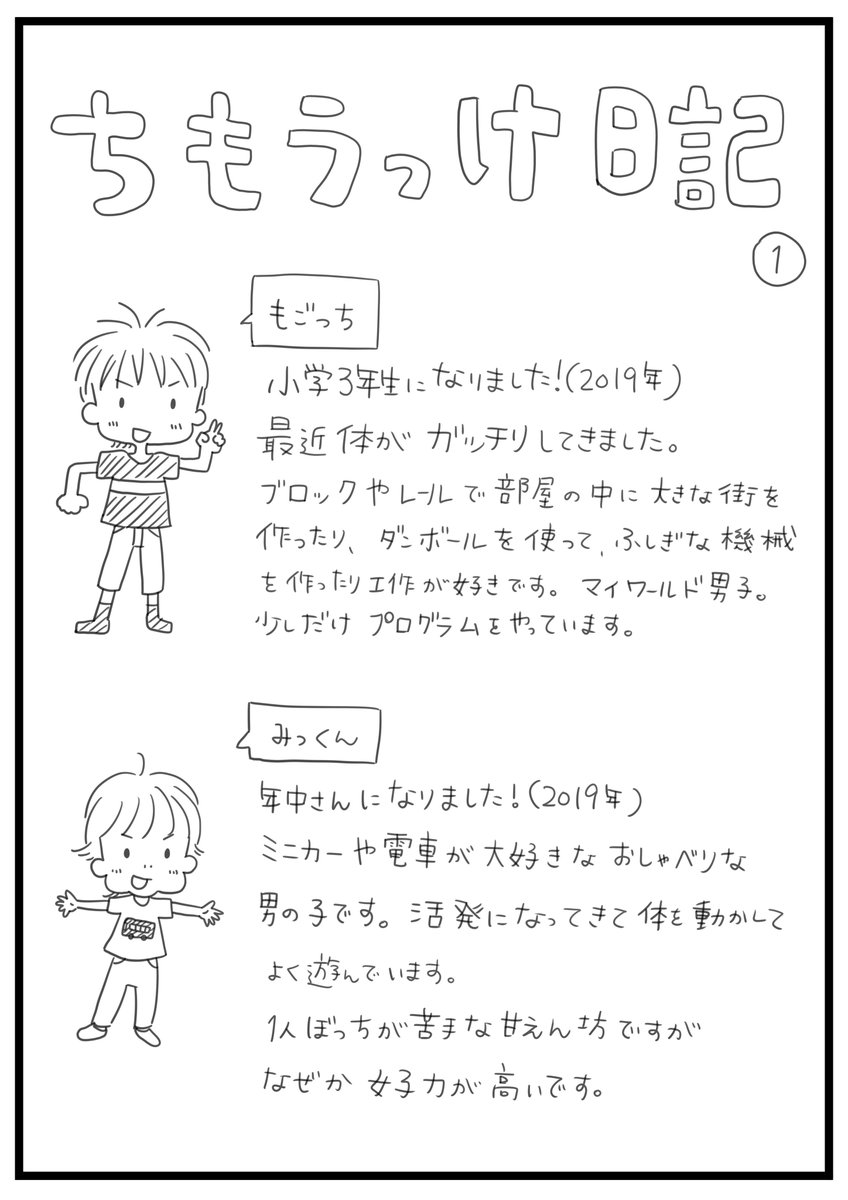 ちもうっけ日記
1
もごっち
小学3年生になりました!(2019年)
最近体がガッチリしてきました。
ブロックやレールで部屋の中に大きな街を
作ったり、ダンボールを使って、ふしぎな機械
を作ったり工作が好きです。マイワールド男子。
少しだけプログラムをやっています。
みっくん
年中さんになりました!(2019年)
ミニカーや電車が大好きなおしゃべりな
男の子です。活発になってきて体を動かして
よく遊んでいます。
1人ぼっちが苦手な甘えん坊ですが
なぜか女子力が高いです。